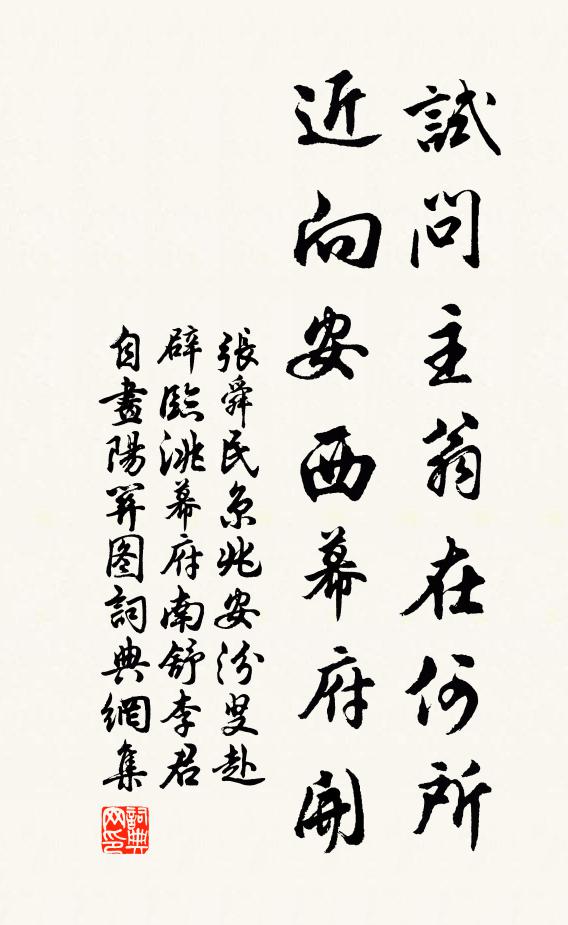 試問主翁在何所
近向安西幕府開
張舜民京兆安汾叟赴
辟臨洮幕府南舒李君
自畫陽關图詞典網集
詞典
网印